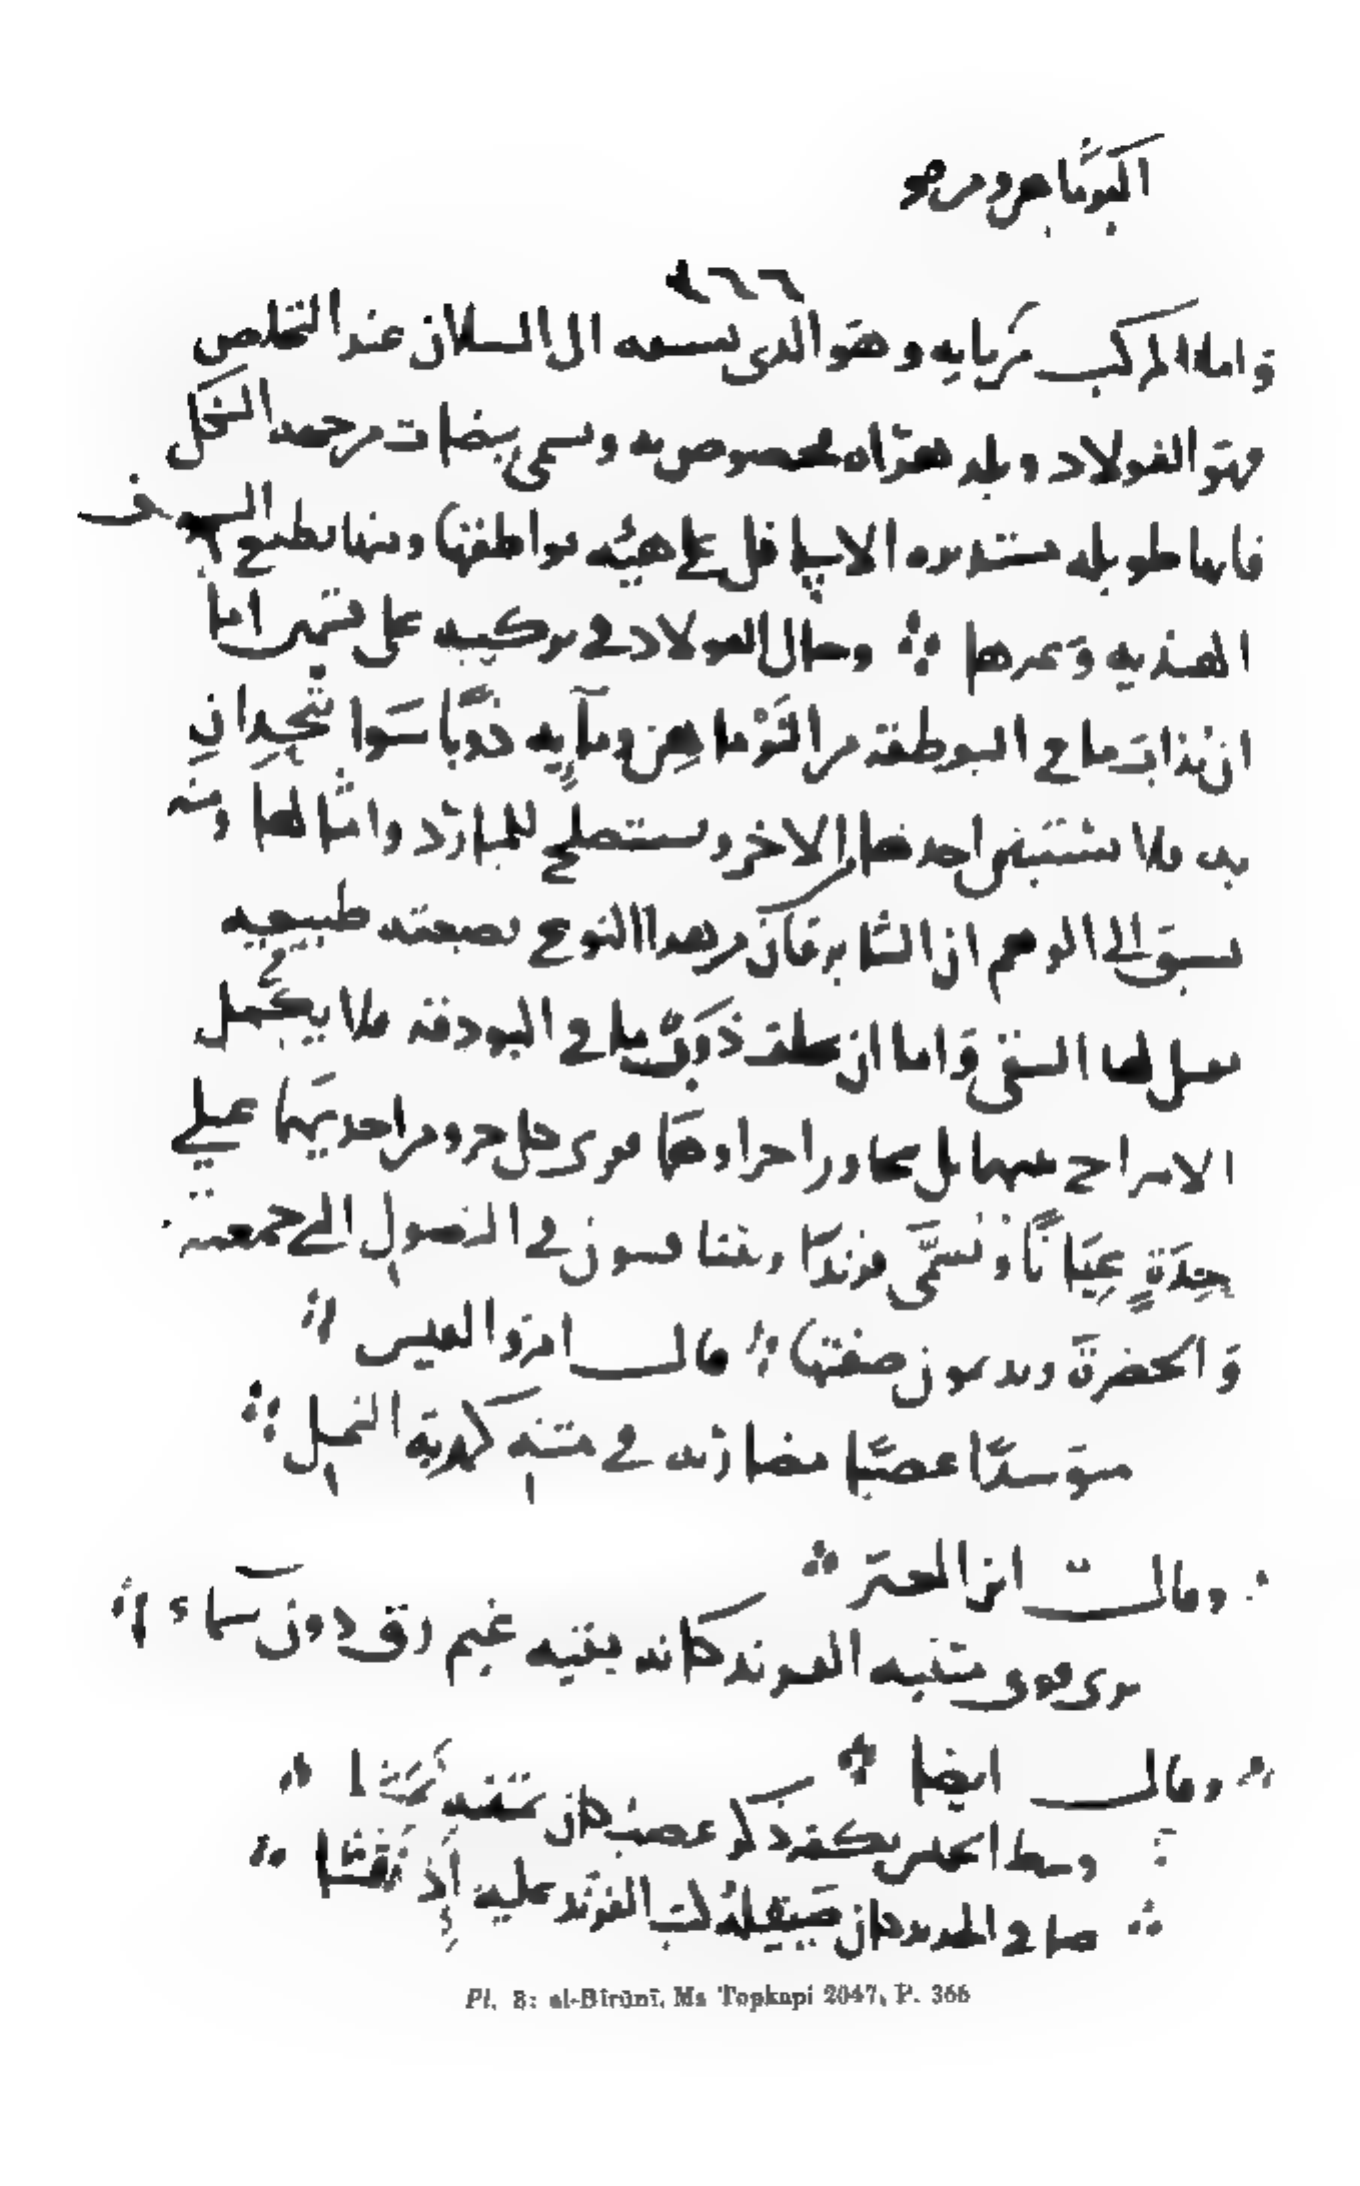 ٣٦٦
واما المركب من مايه وهو الذى يسبق الى السلان عند التخلص
فهو الفولاد وبلد هراة مخصوص به وتسمى بيضات من جهة الشكل
فانها طويلة مستديرة الاسافل على هيئة بواطقها ومنها تطبع السيوف
الهندية وغيرها وحال الفولاد في تركيبه على قسمين اما
ان يذاب ما في البوطقة من النرماهن ومآيه ذوبا سوا يتحدان
به فلا يستبين احدهما من الاخر ويستصلح للمبارد وامثالها ومنه
يسبق الى الوهم ان الشابرقان من هذا النوع بصنعة طبيعية
تقبل لها السقى واما ان يختلف ذوب ما في البودقة فلا يكمل
الامتزاج بينهما بل يتجاور اجزاوهما فيرى كل جزو من احديهما على
حدة عيانا وتسمى فرندا ويتنافسون في النصول التى جمعته
والخضرة ويديمون صفتها قال امرؤ القيس
متوسدا عضبا مضاربه في متنه كمدبة النمل
وقال ابن المعتز
ترى فوق متنيه الفرند كانه بقية غيم رق دون سماء
وقال ايضا
وسط الخميس بكفه ذكر عضب كان بمتنه نمشا
صافي الحديد كان صيقله كتب الفرند عليه اذ نقشا
Pl. 8: al-Bīrūnī, Ms Topkapi 2047, P. 366